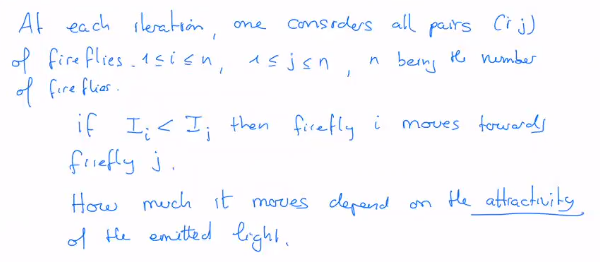 At each iteration, one considers all pairs (i j)
of fireflies. 1 ≤ i ≤ n, 1 ≤ j ≤ n, n being the number
of fireflies.
if I_i < I_j then firefly i moves towards
firefly j.
How much it moves depend on the attractivity
of the emitted light.